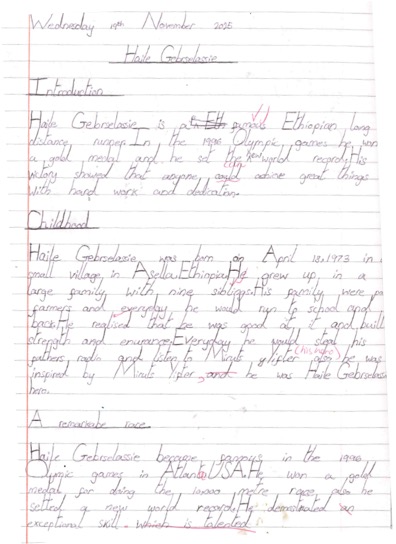 Wednesday 19th November 2025
Haile Gebrselassie
Introduction
Haile Gebrselassie is a famous Ethiopian long
distance runner. In the 1996 Olympic games he won
a gold medal and he set the new world record. His
victory showed that anyone could achive great things
with hard work and dedication.
Childhood
Haile Gebrselassie was born on April 18, 1973 in a
small village, in Asella, Ethiopia. He grew up in a
large family with nine siblings. His family were poor
farmers and everyday he would run to school and
back. He realised that he was good at it and built
strength and enurance. Everyday he would steal his
fathers radio and listen to Miruts Yifter also he was
inspired by Miruts Yifter, he was Haile Gebrselassie
hero.
A remarkabe race
Haile Gebrselassie became famous in the 1996
Olympic games in Atlanta, USA. He won a gold
medal for doing the 10,000 metre race also he
setted a new world record. He demostrated an
exceptional skill which is talented.